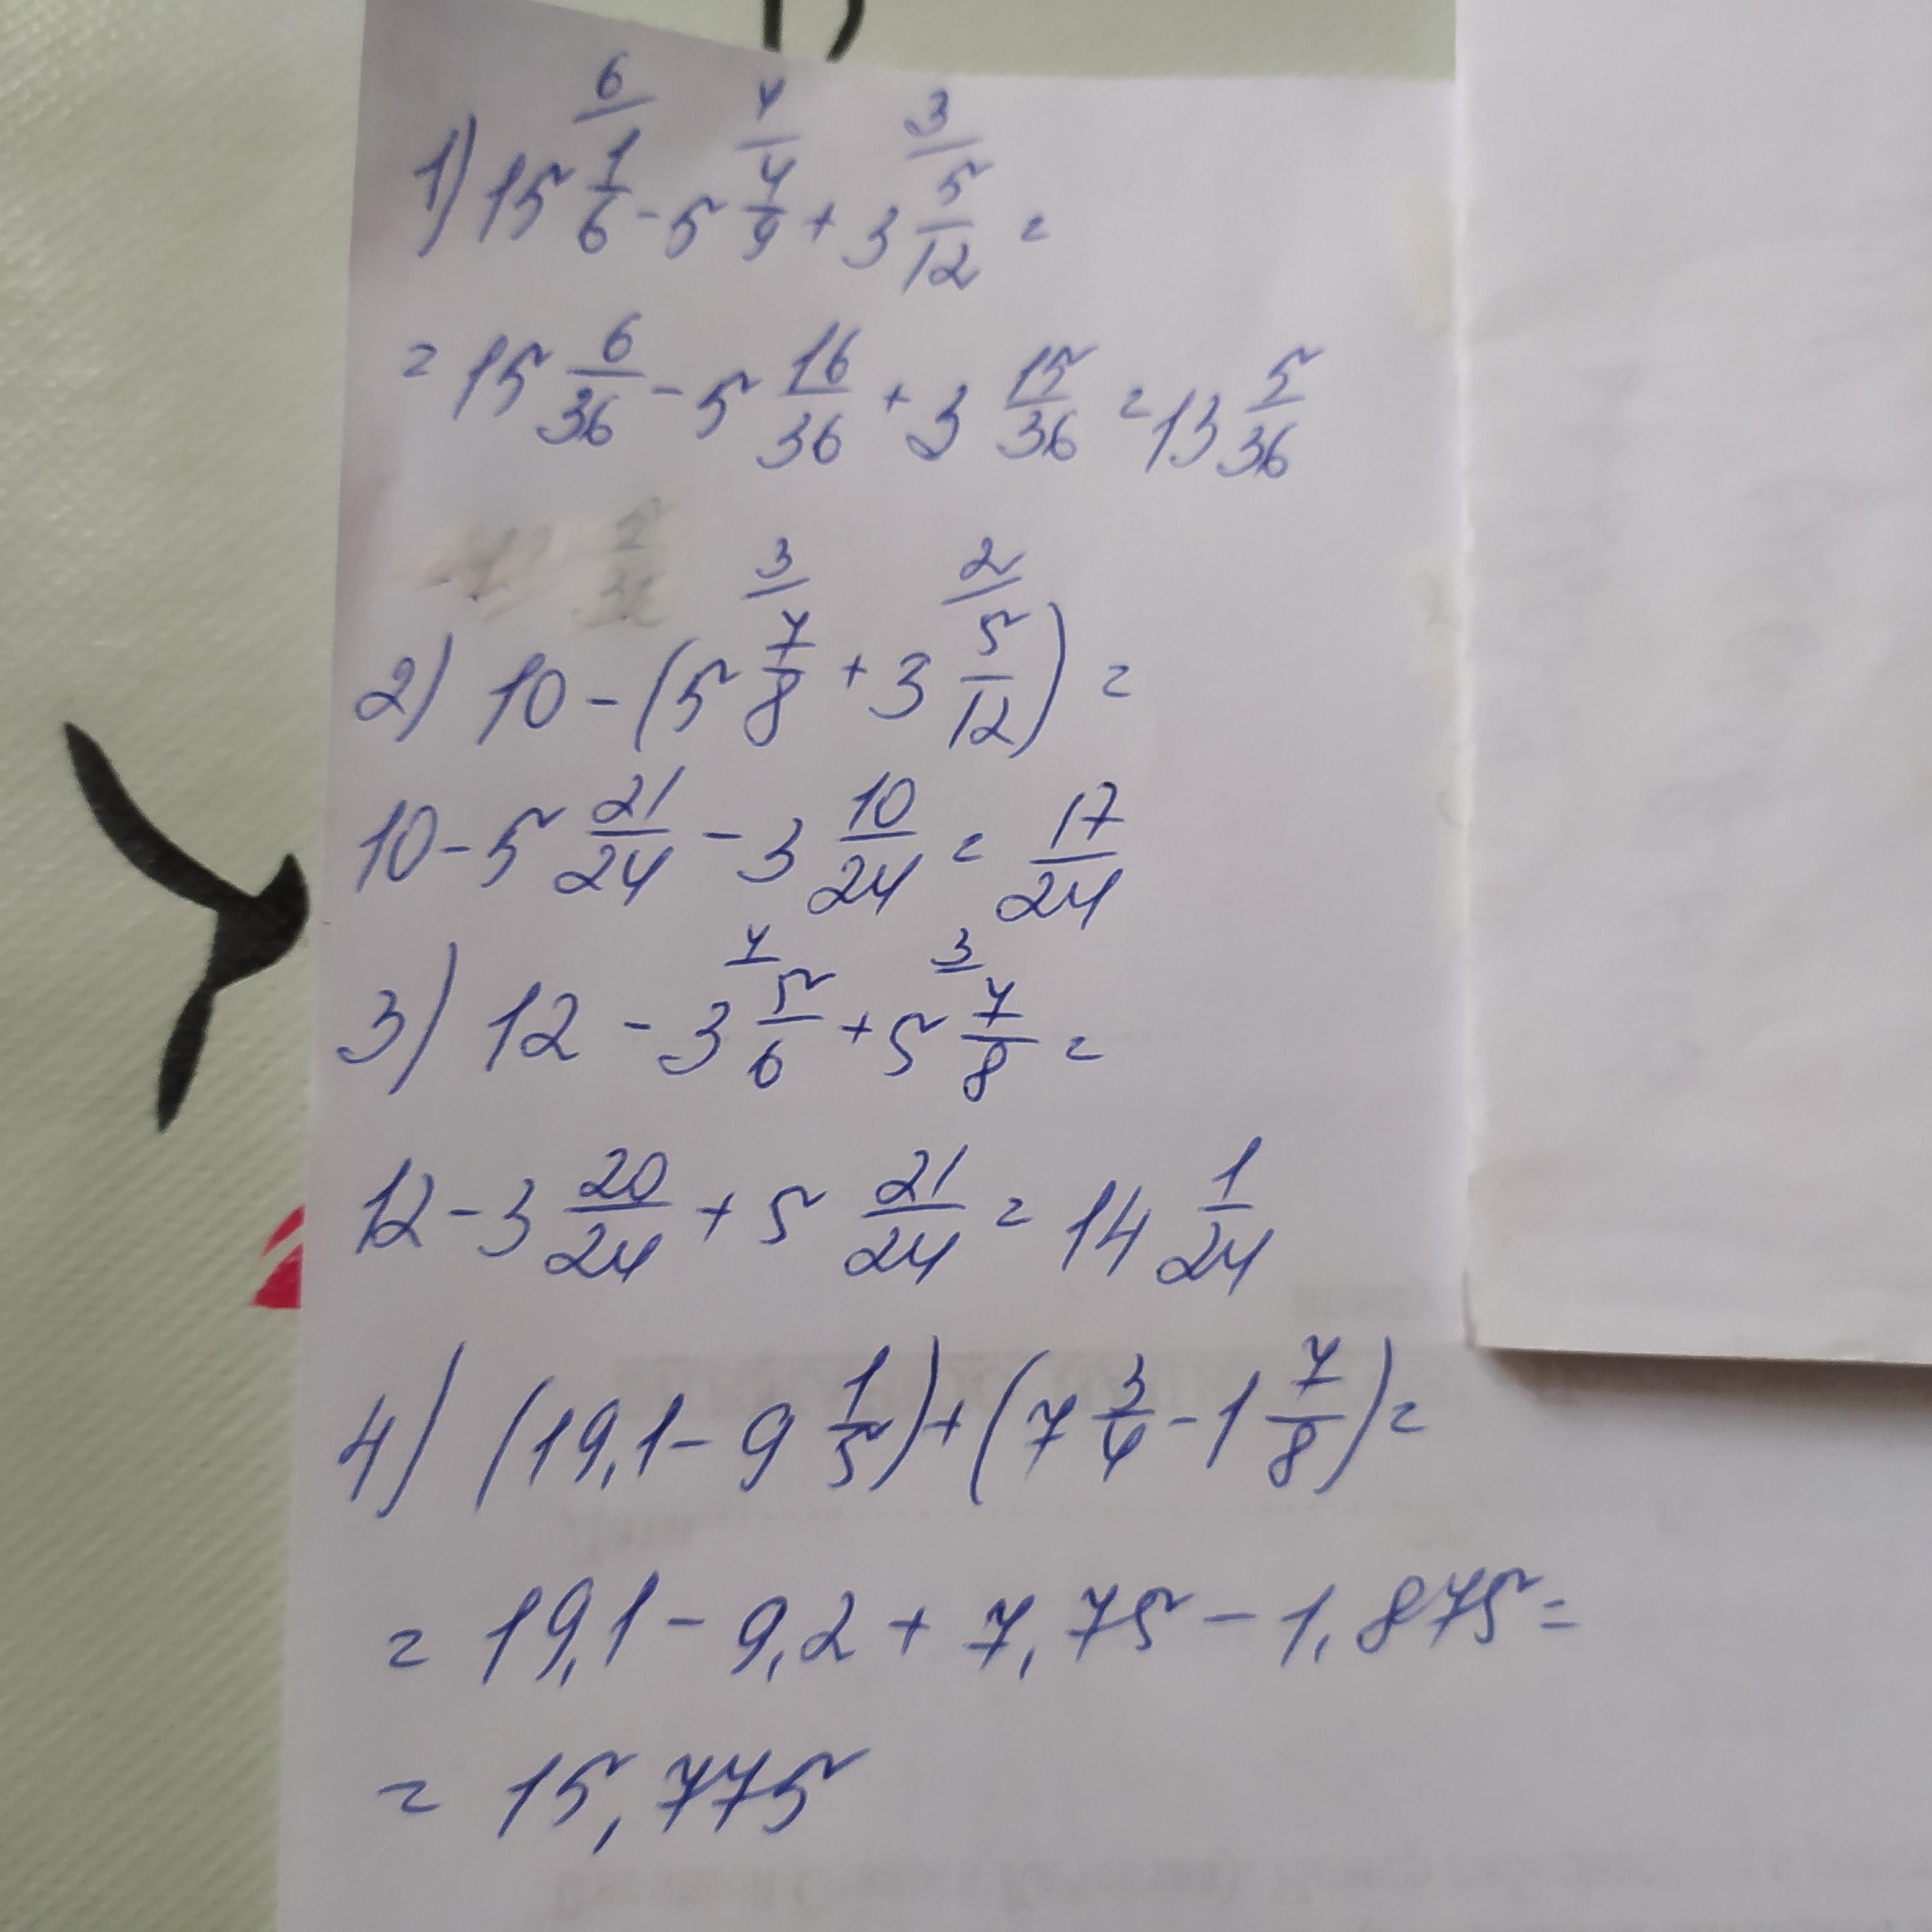 6/ 4/ 3/
1) 15 1/6 - 5 4/9 + 3 5/12 =
= 15 6/36 - 5 16/36 + 3 15/36 = 13 5/36
3/ 2/
2) 10 - (5 7/8 + 3 5/12) =
10 - 5 21/24 - 3 10/24 = 17/24
4/ 3/
3) 12 - 3 5/6 + 5 7/8 =
12 - 3 20/24 + 5 21/24 = 14 1/24
4) (19,1 - 9 1/5) + (7 3/4 - 1 7/8) =
= 19,1 - 9,2 + 7,75 - 1,875 =
= 15,775